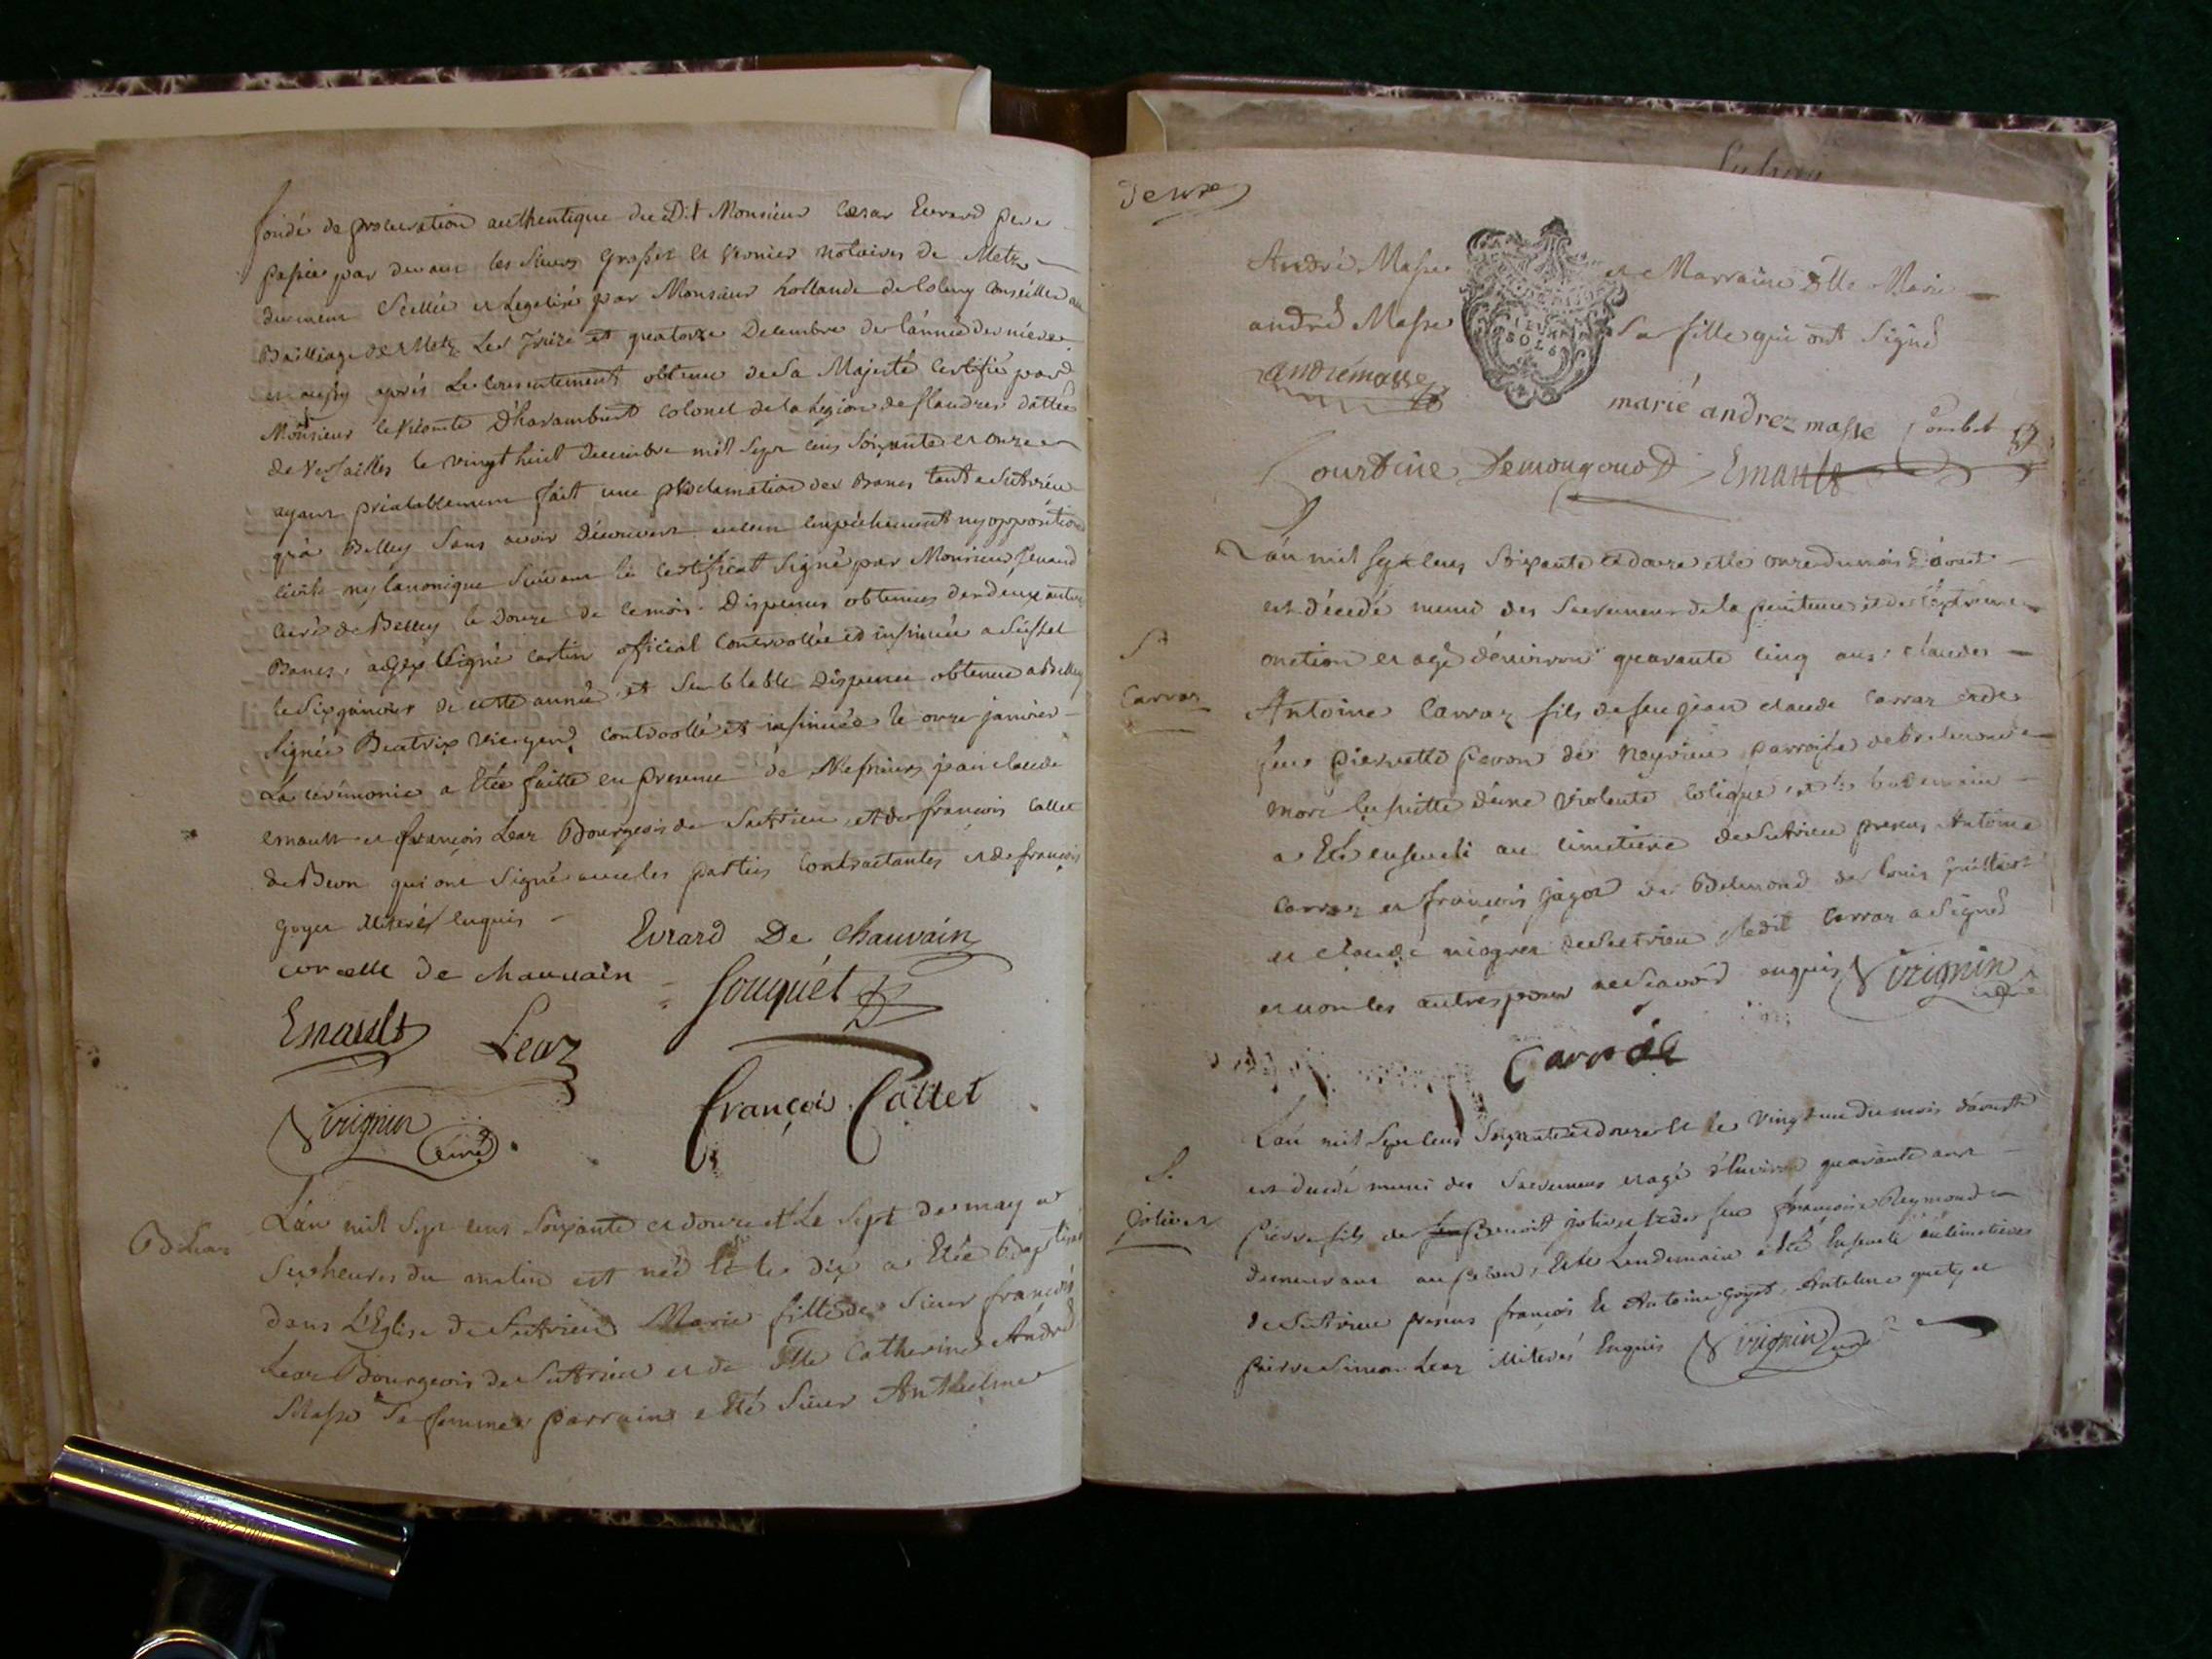 fondé de procuration authentique du Dit Monsieur Cesar Evrard pere
passée par devant les Sieurs et Vernier Notaires de Metz
duement Scellée et Legalisé par Monsieur hollande de Coleny Conseiller au
Bailliage de Metz Les treize et quatorze Decembre de l'année derniere
et aussy aprés Le Consentement obtenu de Sa Majesté Certifié par
Monsieur le vicomte D'harambure Colonel de la Legion de flandres dattée
de Versailles le vingt huit decembre mil Sept Cens Soixante et onze
ayant préalablement fait une proclamation des Bancs tant a Sutrieu
qu'a Belley Sans avoir Découvert aucun Empéchement ny opposition
civile ny Canonique Suivant le Certificat Signé par Monsieur
curé de Belley le Douze de ce mois. Dispenses obtenues des deux autres
Bancs, a Gex Signé official Controllée et insinuée a Seissel
le Six janvier de cette année, et Semblable Dispense obtenue a Belley
Signée Beatrix Vic. gen. controollé et insinuée le onze janvier
La cérémonie a Etée faitte en presence de Messieurs jean claude
emault et françois Lear Bourgeois de Sutrieu, et de françois Cattet
de Beon qui ont Signé avec les parties Contractantes et de françois
goyet illiteré Enquis
Evrard De Chauvain
corcelle de chauvain
Souquét
Emault Lear
françois Cattet
Virignin Curé
B Lear
L'an mil Sept Cens Soixante et douze et Le Sept de may a
Six heures du matin est née et le dix a Etée Baptisée
dans L'Eglise de Sutrieu Marie fille de Sieur françois
Lear Bourgeois de Sutrieu et de Dlle Catherine André
Masse Sa femme parrain a Eté Sieur Anthelme
deux
André Masse et Marraine Dlle Marie
andré Masse Sa fille qui ont Signé
andrémasse
marié andrez masse Combet
Courtine Demongonod Emault
L'an mil Sept Cens Soixante et douze et le onze du mois d'aoust
est décedé muni des Sacremens de la penitence et de l'extreme
S
onction et agé d'environ quarante Cinq ans: claude
Carraz
Antoine Carraz fils de feu jean claude Carraz et de
feue pierrette de Neyrieu parroisse de
mort Ensuitte d'une violente Colique, et le lendemain
a Eté enseveli au Cimetiere de Sutrieu presens Antoine
Carraz et françois jagot de Belmond de Louis
et Claude de Sutrieu, ledit Carraz a Signé
et non les autres pour ne Scavoir enquis Virignin curé
Carraz
L'an mil Sept Cens Soixante et douze et le vingt un du mois d'aoust
S.
est decedé muni des Sacremens et agé d'Environ quarante ans
jolivet
pierre fils de Benoit jolivet et de feue françoise Reymond
demeurant au, Et le Lendemain a Eté Enseveli au Cimetiere
de Sutrieu presens françois Et Antoine Goyet, Antelme et
pierre Simeon Lear illiterés Enquis Virignin curé